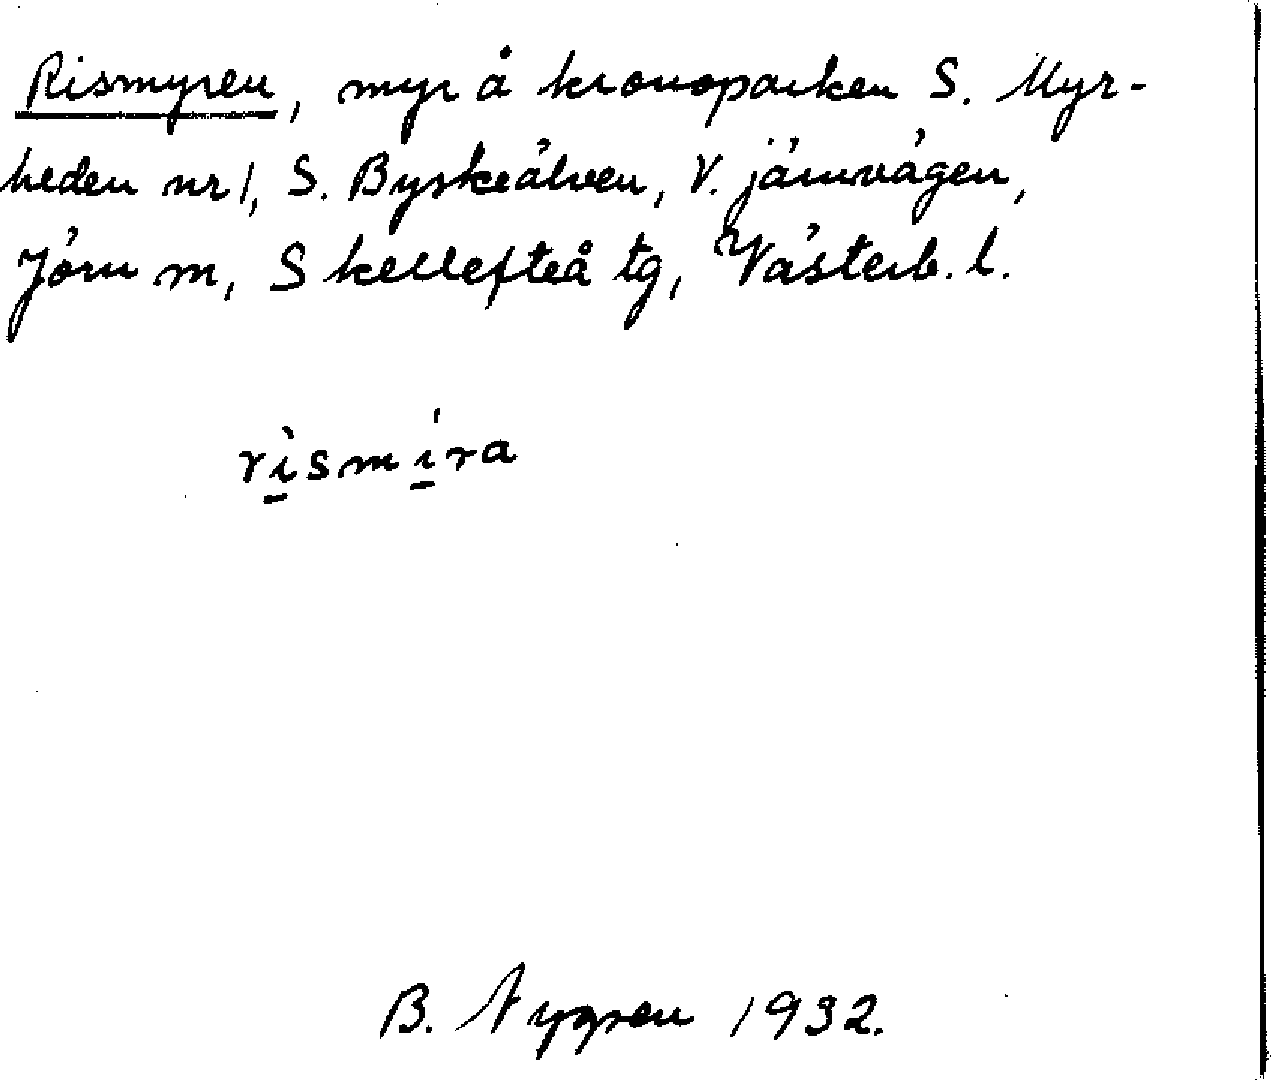 Rismyren, myr å kronoparken S. Myr-
heden nr 1, S. Byskeälven, V. järnvägen,
Jörn sn, Skellefteå tg, Västerb. l.
rìsmíra
B. Nygren 1932.